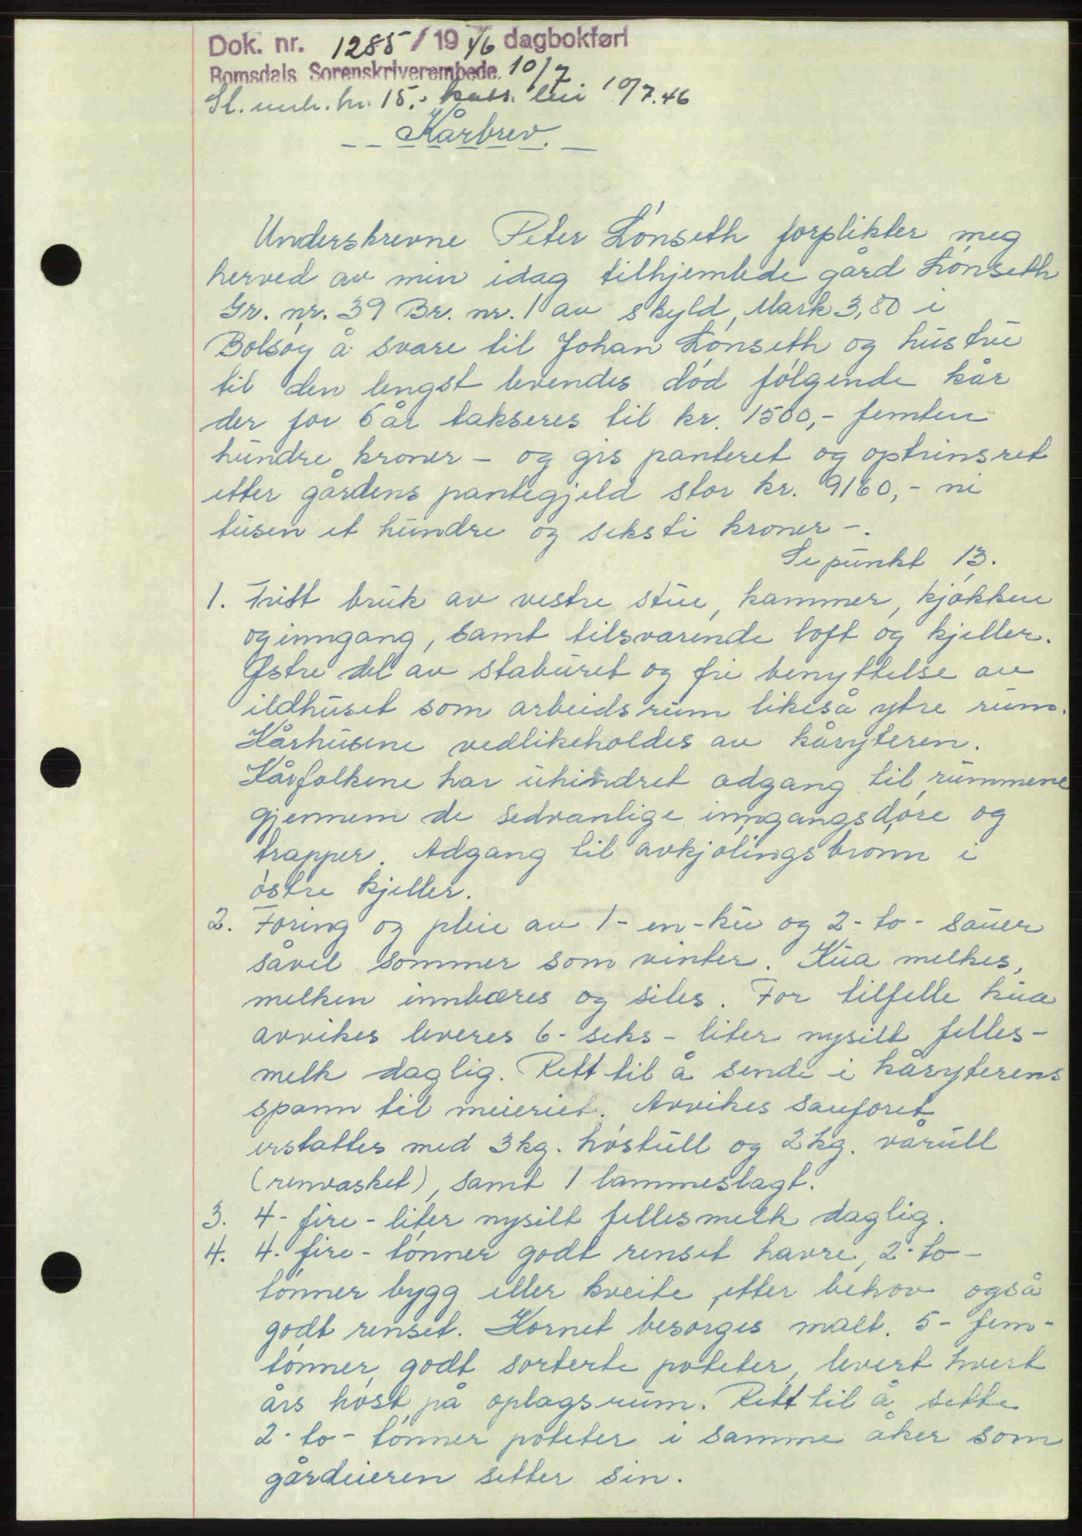 Dok. nr. 1285/1946 dagbokført
Romsdals Sorenskriverembede. 10/7
St. merk. kr. 15,- kass. lui 10/7.46
Kårbrev.
Underskrevne Peter Lønseth forplikter meg
herved av min idag tilhjemlede gård Lønseth
Gr. nr. 39 Br. nr. 1 av skyld, Mark 3,80 i
Bolsøy å svare til Johan Lønseth og hustru
til den lengst levendes død følgende kår
der for 5 år takseres til kr. 1500,- femten
hundre kroner - og gis panteret og optrinsret
etter gårdens pantegjeld stor kr. 9160,- ni
tusen et hundre og seksti kroner -.
Se punkt 13.
1. Fritt bruk av vestre stue, kammer, kjøkken
og inngang, samt tilsvarende loft og kjeller.
Østre del av staburet og fri benyttelse av
ildhuset som arbeidsrum likeså ytre rum.
Kårhusene vedlikeholdes av kåryteren.
Kårfolkene har uhindret adgang til rummene
gjennem de sedvanlige inngangsdøre og
trapper. Adgang til avkjølingsbrønn i
østre kjeller.
2. Foring og pleie av 1- en - ku og 2- to - sauer
såvel sommer som vinter. Kua melkes,
melken innbæres og siles. For tilfelle kua
avvikes leveres 6- seks - liter nysilt felles-
melk daglig. Rett til å sende i kåryterens
spann til meieriet. Avvikes sauforet
erstattes med 3 kg. høstull og 2 kg. vårull
(renvasket), samt 1 lammeslagt.
3. 4- fire - liter nysilt fellesmelk daglig.
4. 4- fire - tønner godt renset havre, 2- to -
tønner bygg eller kveite, etter behov også
godt renset. Kornet besørges malt. 5- fem-
tønner godt sorterte poteter, levert hvert
års høst på oplagsrum. Rett til å sette
2- to - tønner poteter i samme åker som
gårdeieren setter sin.